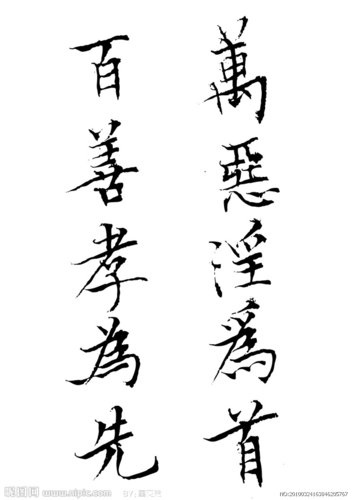 萬惡淫爲首
百善孝為先
昵图网 www.nipic.com
NO:20190324163846295767